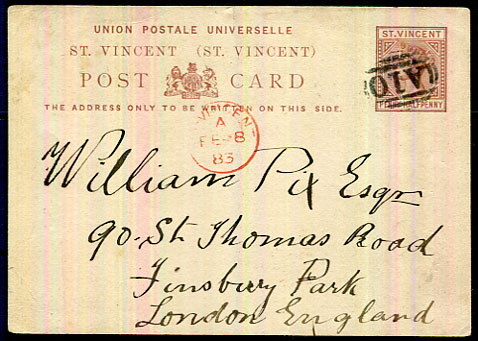 UNION POSTALE UNIVERSELLE
ST. VINCENT (ST. VINCENT)
POST CARD
THE ADDRESS ONLY TO BE WRITTEN ON THIS SIDE.
ST. VINCENT
A10
PENNY HALFPENNY
VINCENT
A
FE 8
83
William Pix Esqr
90. St. Thomas Road
Finsbury Park
London England